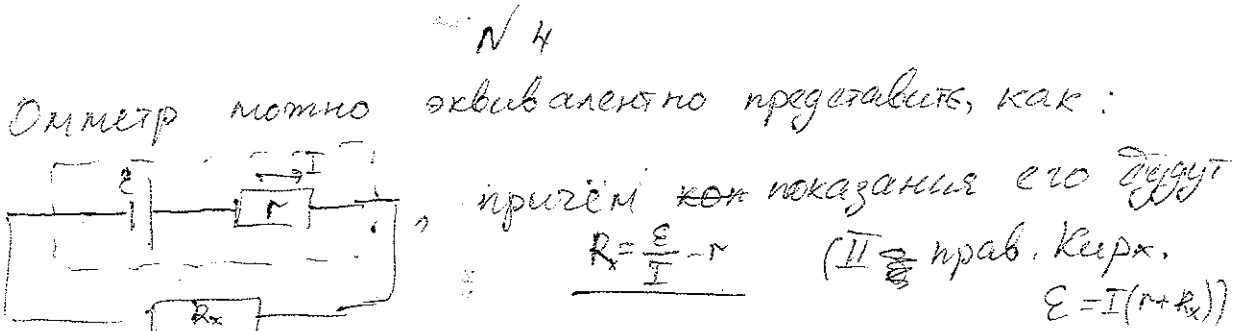 N 4
Омметр можно эквивалентно представить, как:
ε I
r
, причём показания его будут
R_x = ε/I - r (II прав. Кирх.
ε = I(r+R_x))
R_x